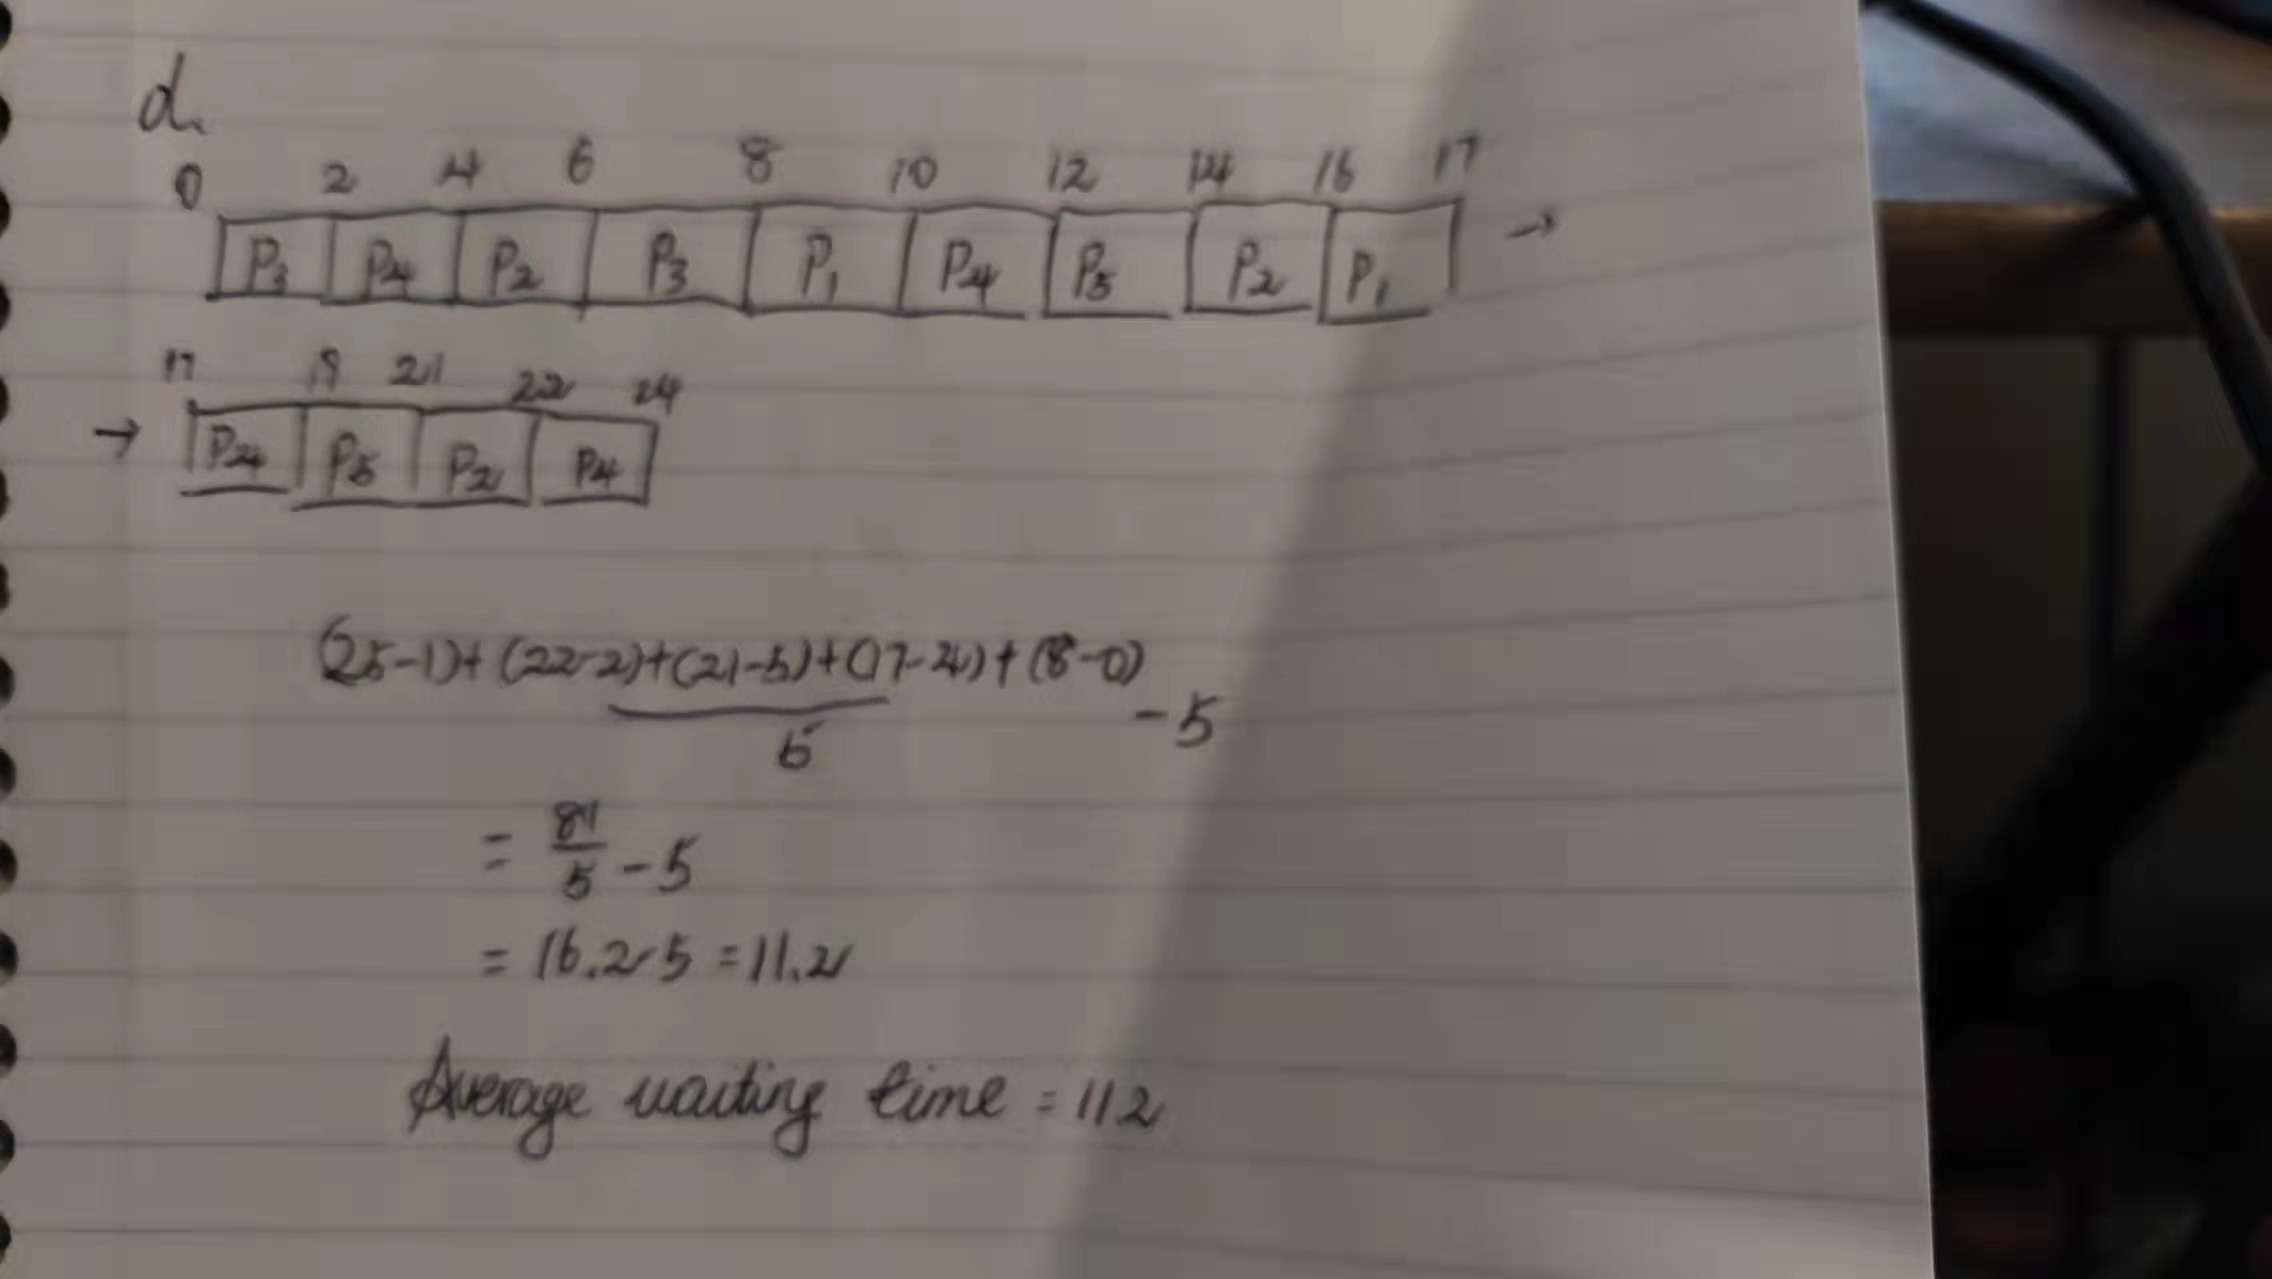 d.
0 2 4 6 8 10 12 14 16 17
P3 P4 P2 P3 P1 P4 P5 P2 P1 →
17 19 21 22 24
→ P4 P5 P2 P4
(25-1)+(22-2)+(21-5)+(17-4)+(8-0)
5 -5
= 81/5 - 5
= 16.2-5 = 11.2
Average waiting time = 11.2